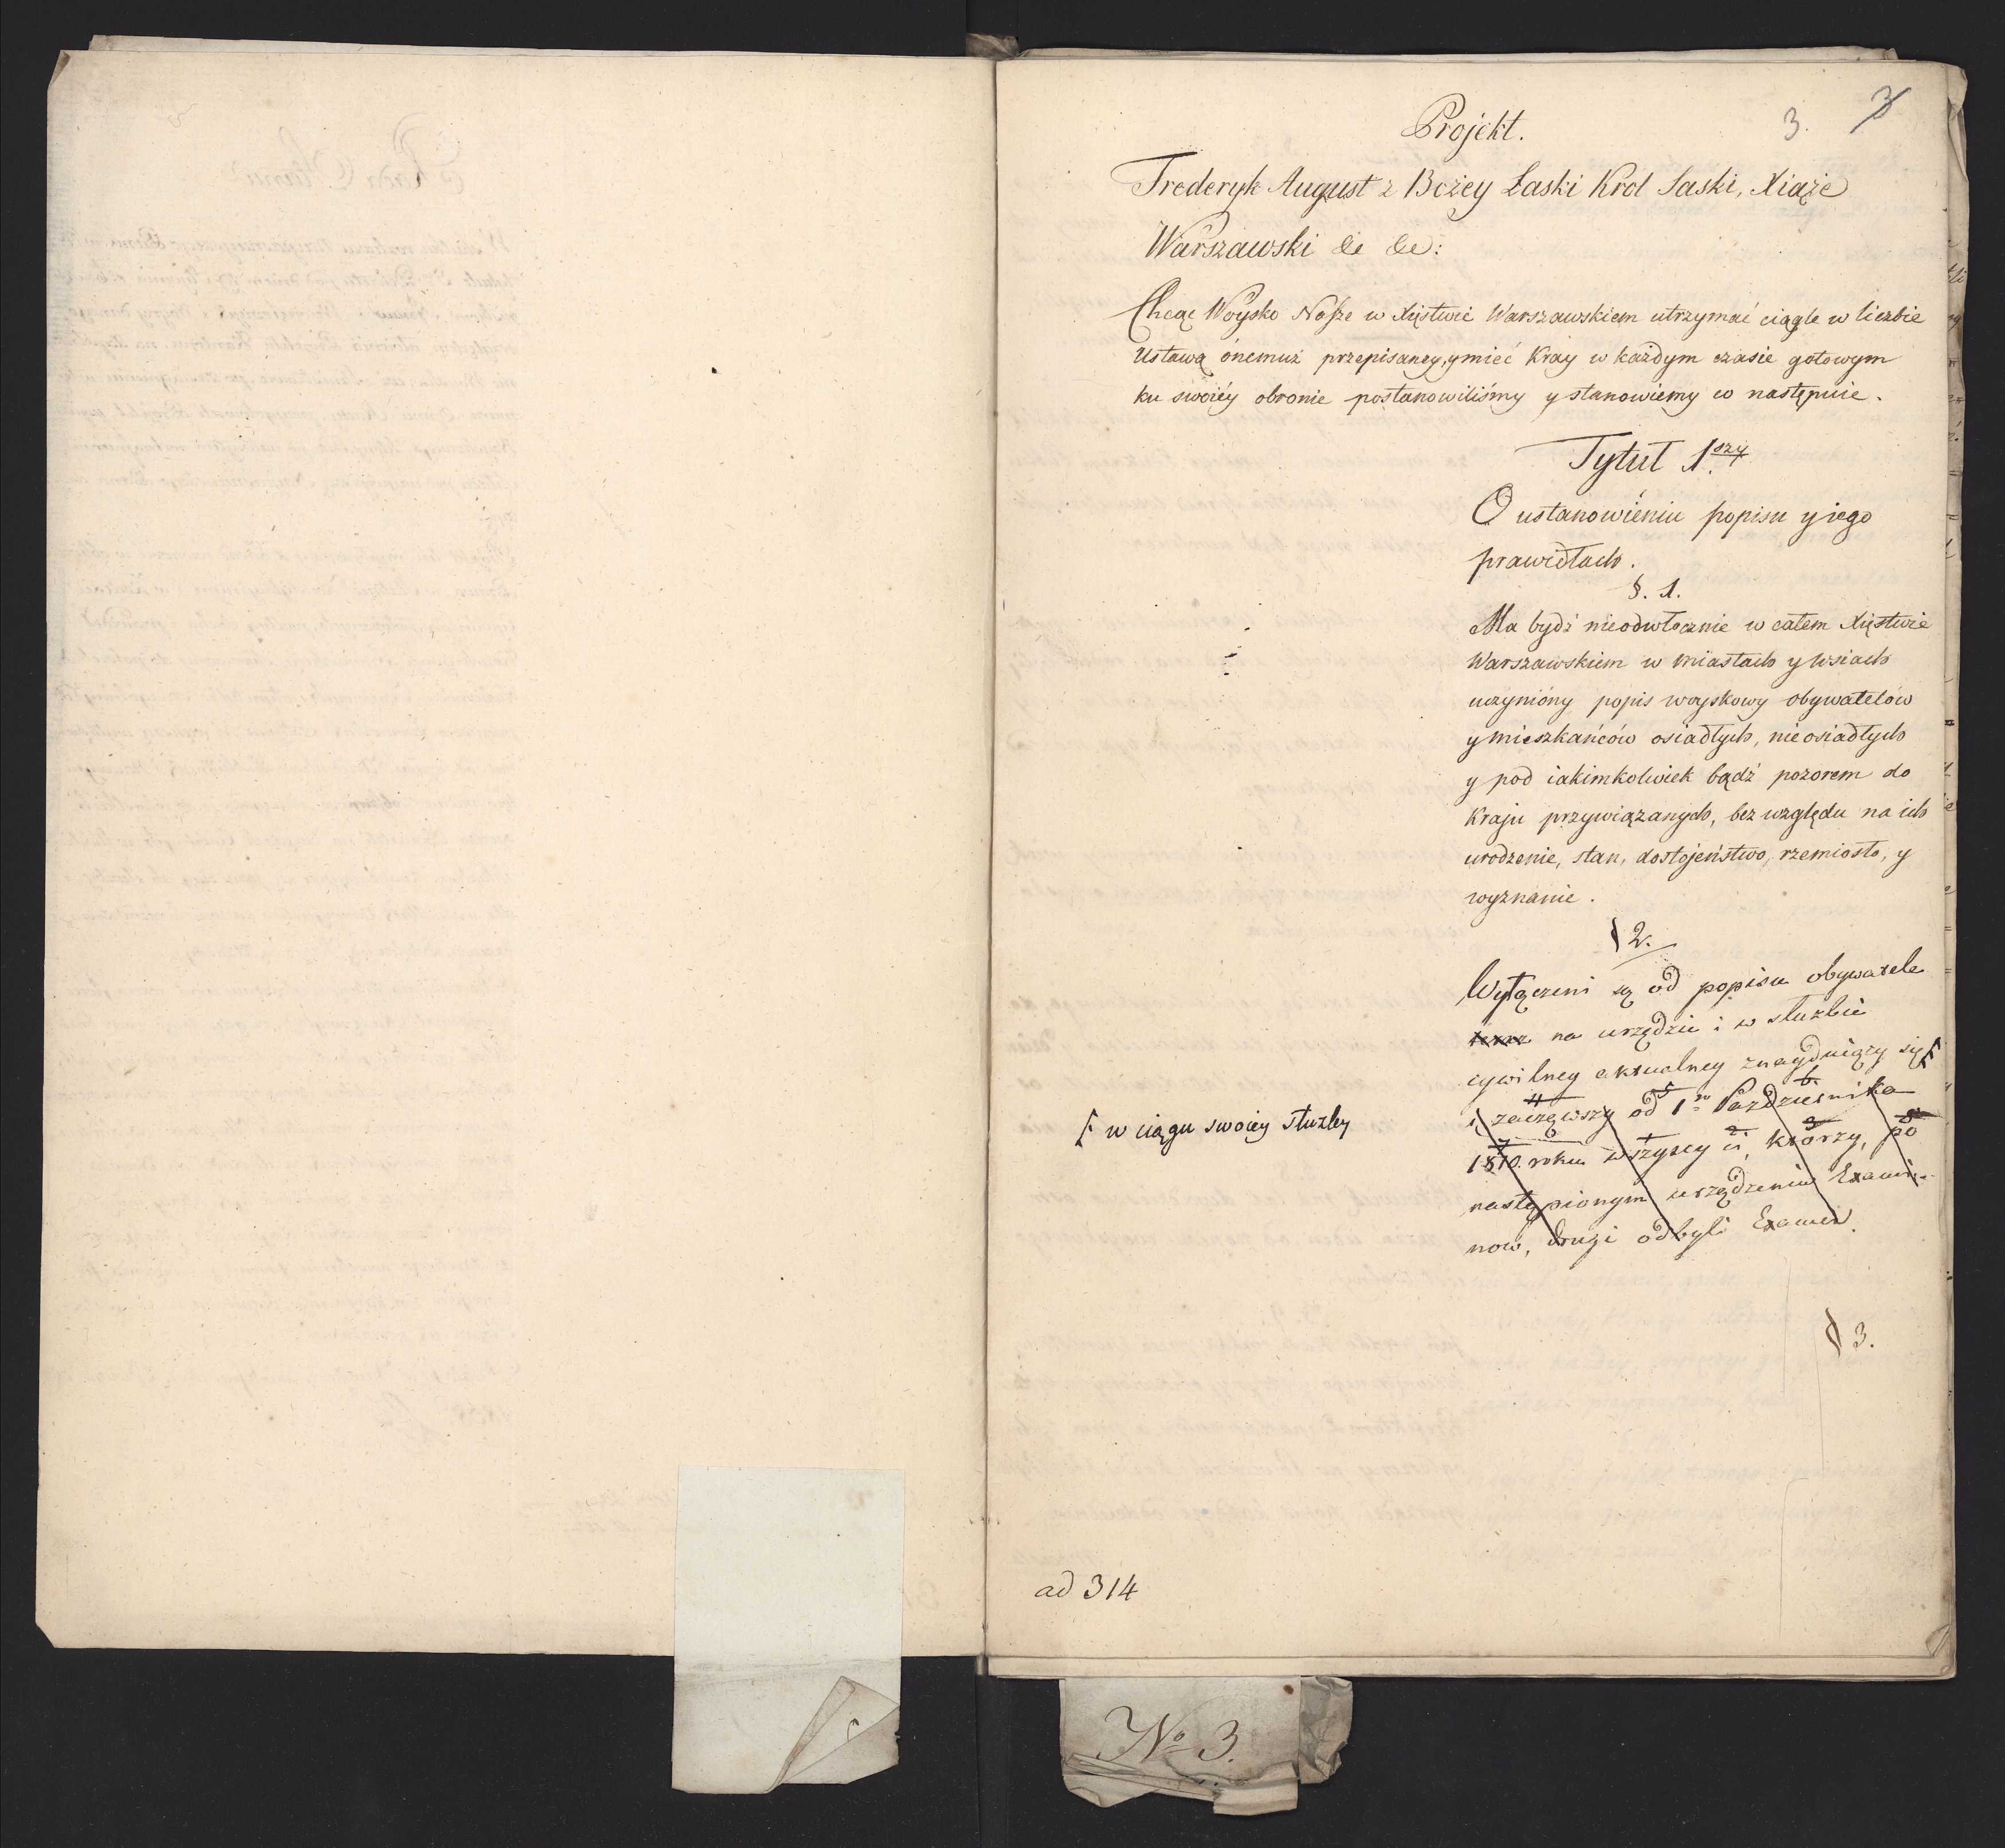 Projekt.
3. 3
Frederyk August z Bożey Łaski Krol Saski, Xiąże
Warszawski &c &c:
Chcąc Woysko Nasze w Xięstwie Warszawskiem utrzymać ciągle w liczbie
Ustawą ónemuż przepisaney, y mieć Kray w każdym czasie gotowym
ku swoiéy obronie postanowiliśmy y stanowiemy co następuie.
Tytuł 1szy
O ustanowieniu popisu y iego
prawidłach.
§. 1.
Ma bydź nieodwłocznie w całem Xięstwie
Warszawskiem w Miastach y Wsiach
uczynióny popis woyskowy obywatelów
y Mieszkańców osiadłych, nieosiadłych
y pod iakimkolwiek bądź pozorem do
Kraju przywiązanych, bez względu na ich
urodzenie, stan, dostojeństwo, rzemiosło, y
wyznanie.
§ 2.
Wyłączeni są od popisu obywatele
na urzędzie i w służbie
cywilney aktualney znayduiący się [
[ w ciągu swoiey służby
i, zacząwszy od 1go Października
1810. roku wszyscy ci, którzy, po
nastąpionym urządzeniu Exami-
now, drugi odbyli Examen.
§ 3.
ad 314
No 3.